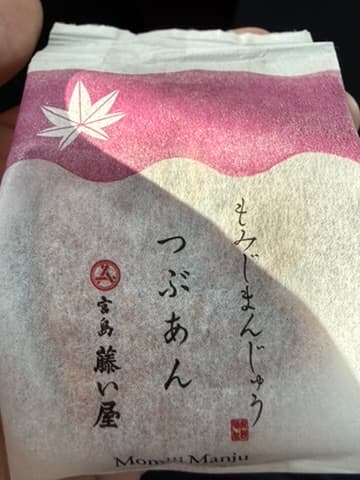 もみじまんじゅう
つぶあん
宮島 藤い屋
Momiji Manju